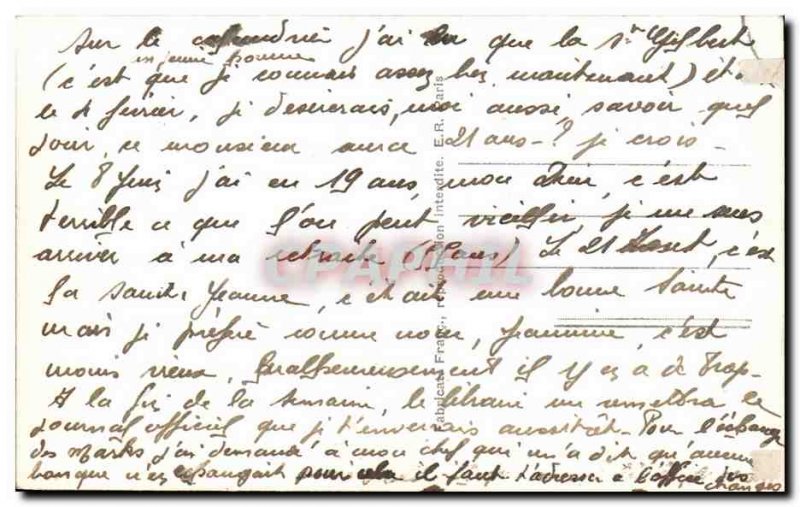 Sur le calendrier j'ai lu que la Ste Gilbert
un jeune homme
(c'est que je connais assez bien maintenant) ét
le 4 février, je desirerais, moi aussi, savoir quel
jour, ce monsieur aura 21 ans-? je crois-
Le 8 Juin j'ai eu 19 ans, mon Dieu, c'est
terrible ce que l'on peut vieillir, je me sens
arriver à ma retraite (55ans) Le 21 Aout, c'est
la Sainte Jeanne, c'était une bonne Sainte
mais je préfère comme nom, Jeannine, c'est
moins vieux, malheureusement il y en a de trop-
A la fin de la semaine, le libraire me remettra le
journal officiel que je t'enverrais aussitôt- Pour l'échange
des Marks j'ai demandé à mon chef qui m'a dit qu'aucune
banque n'en changait il faut t'adresser à l'office des
changes
Fabricati Franc., reproduction interdite. E.R. Paris
CPAPHIL